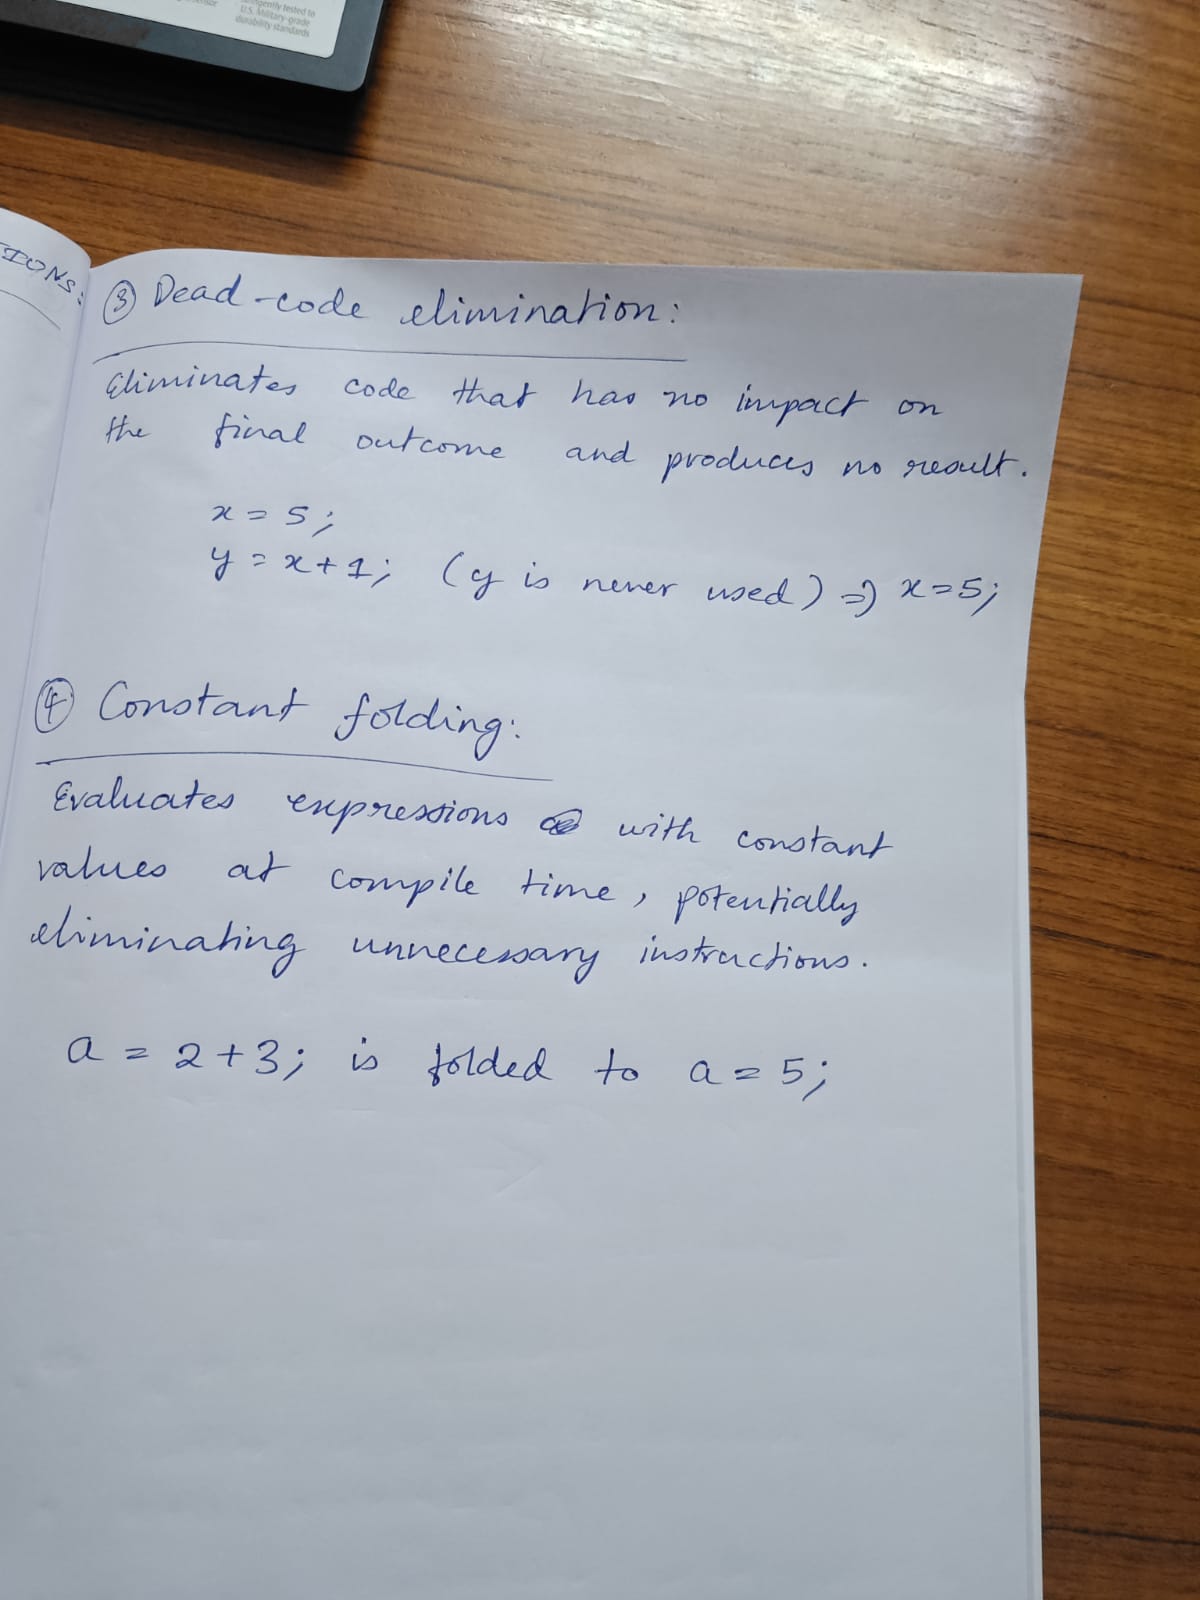 ently tested to
U.S. Military-grade
durability standards
IONS:
③ Dead-code elimination:
Eliminates code that has no impact on
the final outcome and produces no result.
x = 5;
y = x+1; (y is never used) => x=5;
④ Constant folding:
Evaluates expressions with constant
values at compile time, potentially
eliminating unnecessary instructions.
a = 2+3; is folded to a = 5;